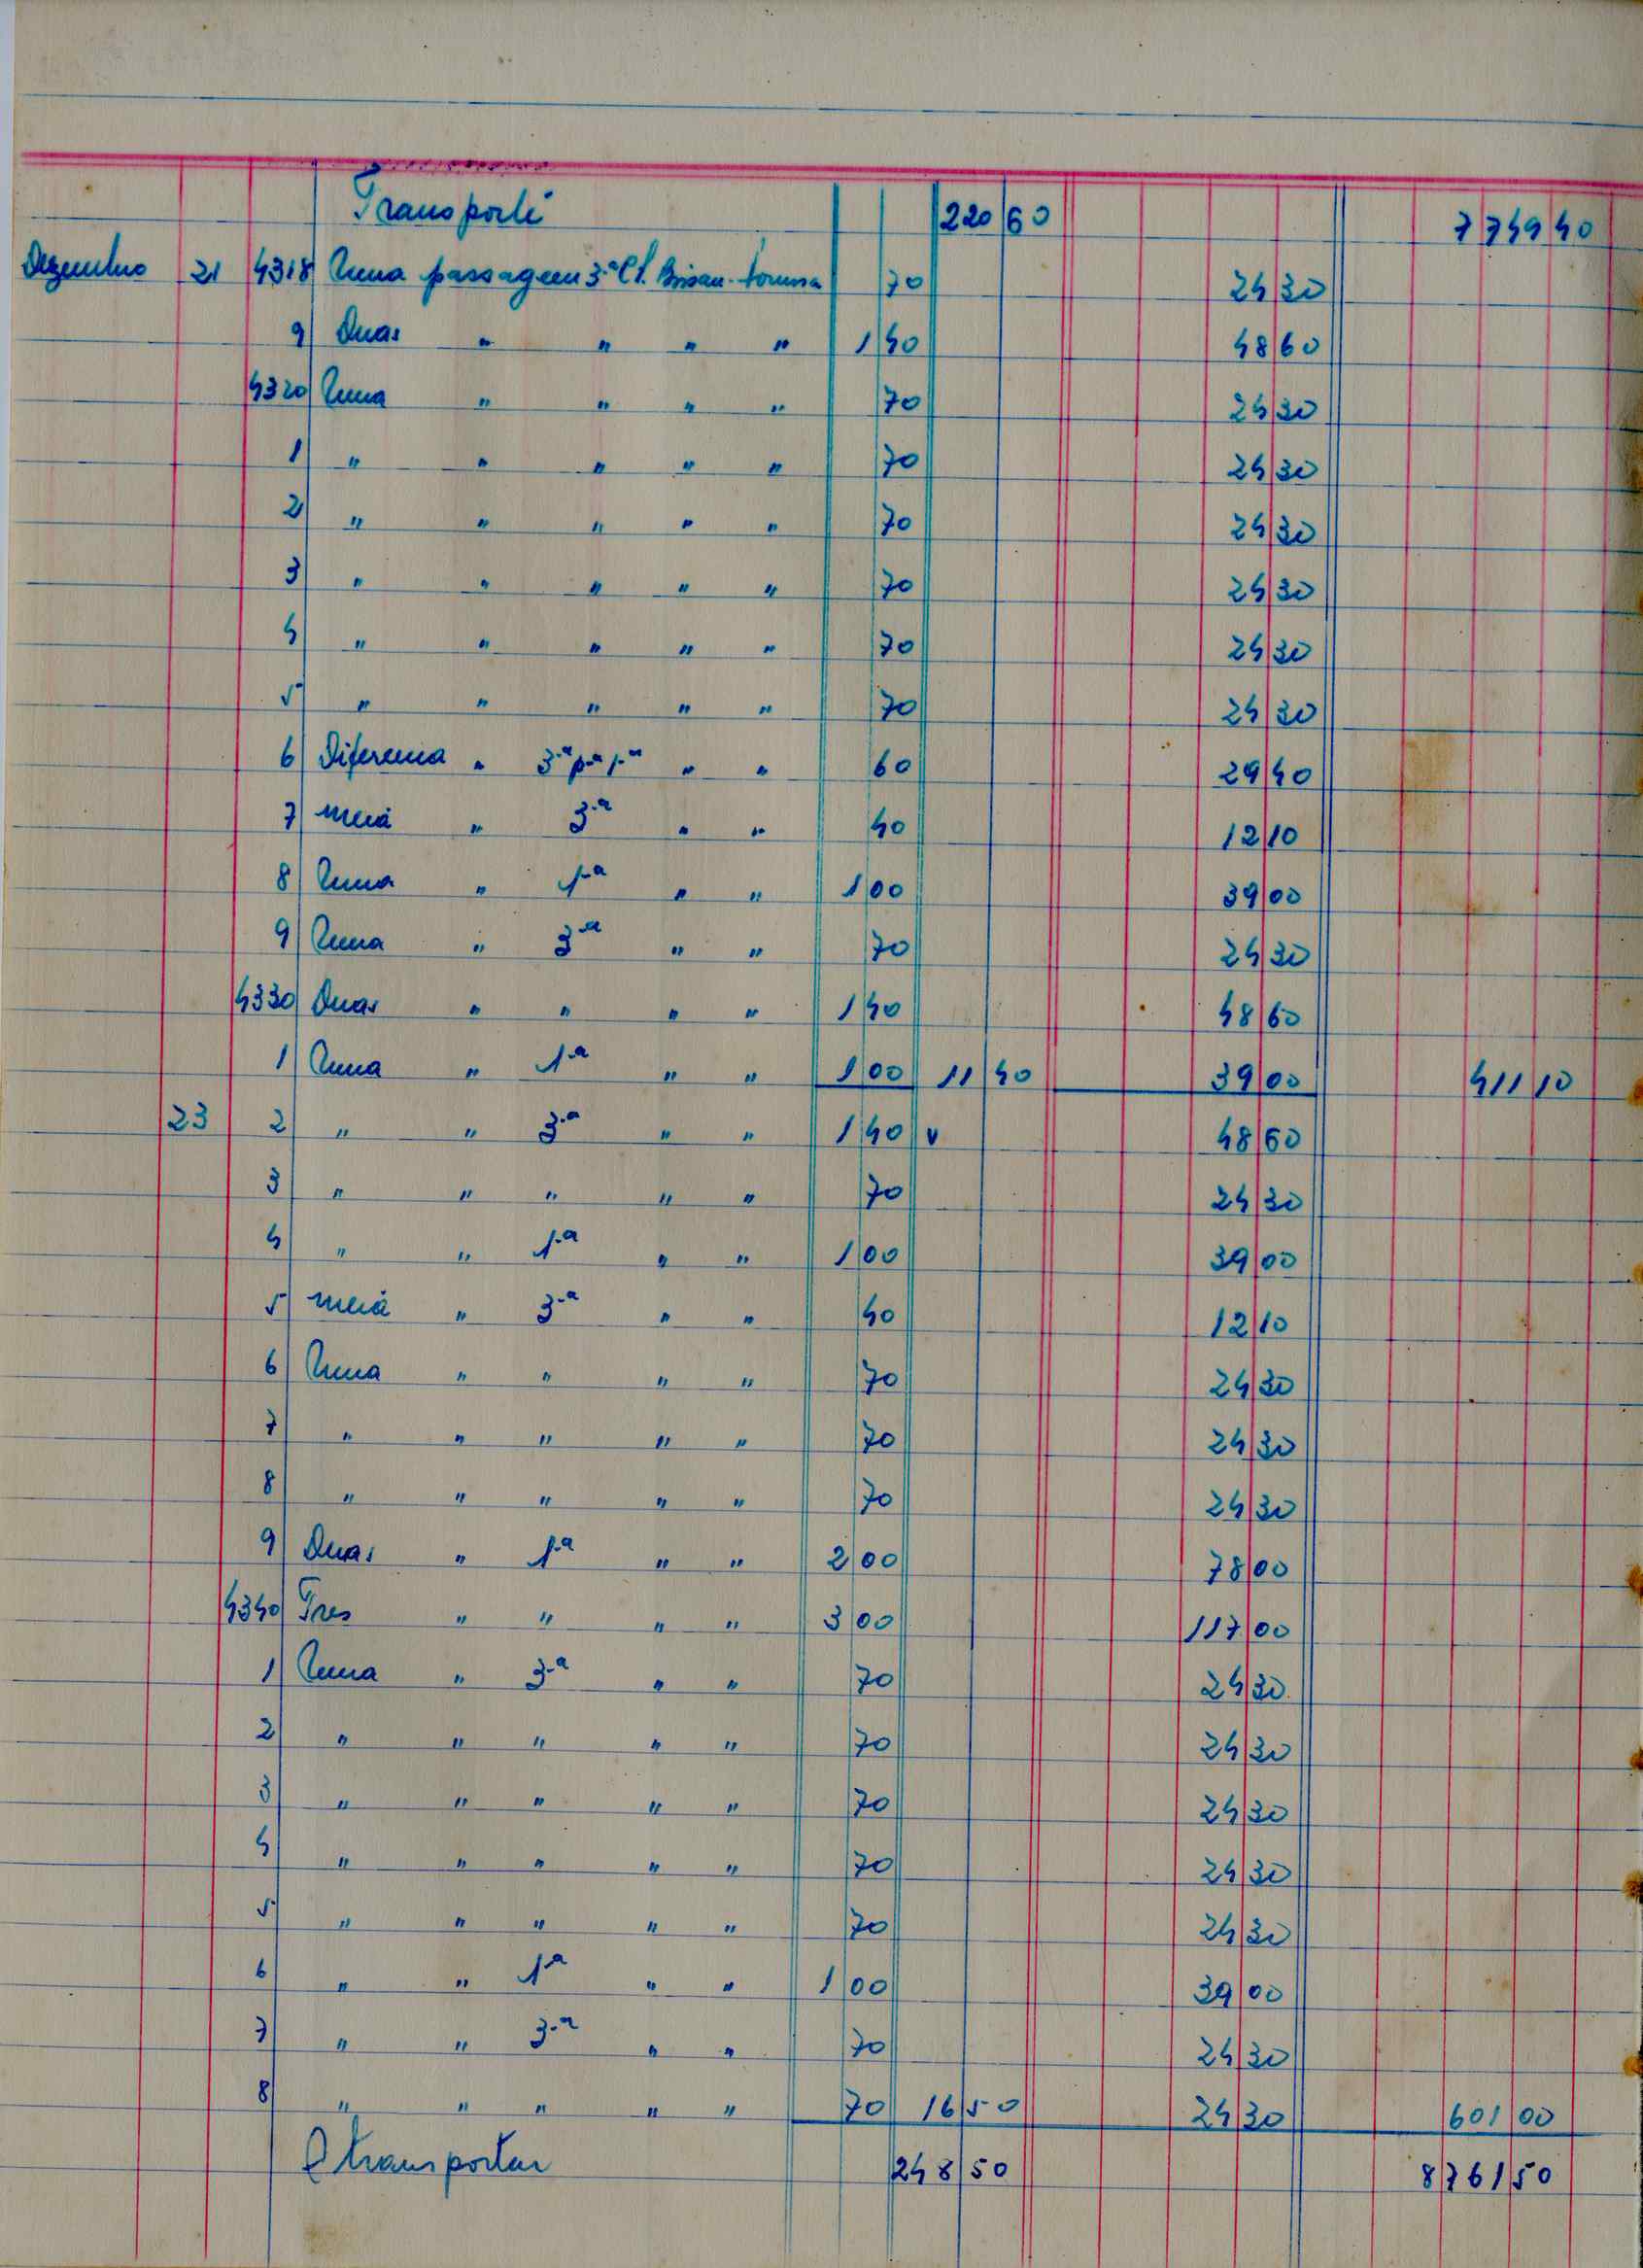 Transporte 220 60 7749 40
Dezembro 21 4318 Uma passagem 3.ª Cl. Bissau- 70 24 30
9 Duas " " " " 1 40 48 60
4320 Uma " " " " 70 24 30
1 " " " " " 70 24 30
2 " " " " " 70 24 30
3 " " " " " 70 24 30
4 " " " " " 70 24 30
5 " " " " " 70 24 30
6 Diferença " 3.ª p.ª 1.ª " " 60 29 40
7 meia " 3.ª " " 40 12 10
8 Uma " 1.ª " " 1 00 39 00
9 Uma " 3.ª " " 70 24 30
4330 Duas " " " " 1 40 48 60
1 Uma " 1.ª " " 1 00 11 40 39 00 411 10
23 2 " " 3.ª " " 1 40 v 48 60
3 " " " " " 70 24 30
4 " " 1.ª " " 1 00 39 00
5 meia " 3.ª " " 40 12 10
6 Uma " " " " 70 24 30
7 " " " " " 70 24 30
8 " " " " " 70 24 30
9 Duas " 1.ª " " 2 00 78 00
4340 Tres " " " " 3 00 117 00
1 Uma " 3.ª " " 70 24 30
2 " " " " " 70 24 30
3 " " " " " 70 24 30
4 " " " " " 70 24 30
5 " " " " " 70 24 30
6 " " 1.ª " " 1 00 39 00
7 " " 3.ª " " 70 24 30
8 " " " " " 70 16 50 24 30 601 00
A transportar 248 50 8761 50